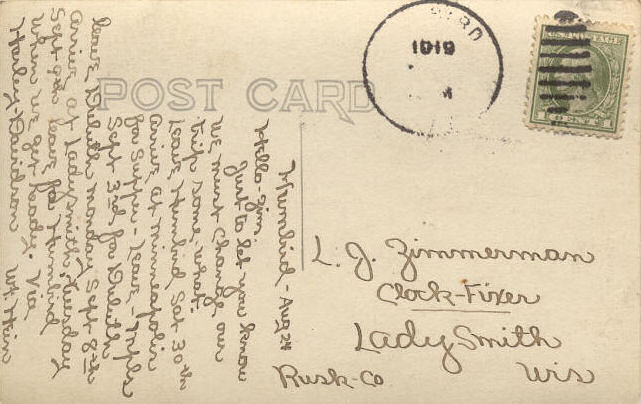 POST CARD
Humbird - Aug 24
Hello - Jim
Just to let you know
we must change our
trip some what.
Leave Humbird Sat 30th
arrive at Minneapolis
for supper - leave - mpls
Sept 3rd for Duluth
leave Duluth monday Sept 8th
arrive at Ladysmith, Tuesday
Sept 9th leave for Humbird
when we get ready. Via
Harley Davidson Wt Hein
1919
U.S. POSTAGE
L. J. Zimmerman
Clock-Fixer
Lady Smith
Rusk-Co Wis